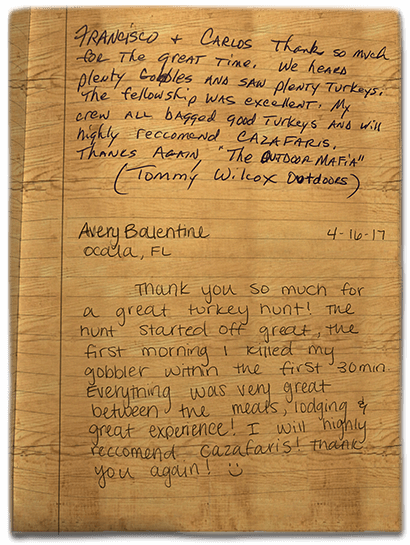 FRANCISCO + CARLOS Thanks so much
for The great Time. We heard
plenty Gobbles AND SAW plenty Turkeys.
The fellowship was excellent. My
crew ALL bagged good Turkeys AND will
highly reccomend CAZAFARIS.
THANKS AGAIN "The OUTDOOR MAFIA"
(TOMMY WILCOX OUTDOORS)
Avery Ballentine 4-16-17
Ocala, FL
Thank you so much for
a great turkey hunt! The
hunt started off great, the
first morning I killed my
gobbler within the first 30min.
Everything was very great
between the meals, lodging &
great experience! I will highly
reccomend Cazafaris! Thank
you again! :)